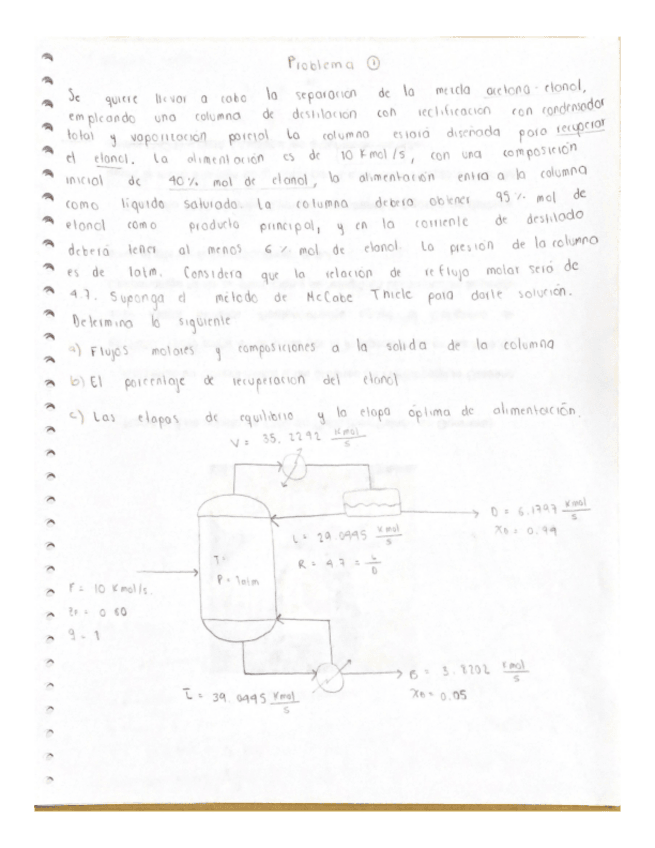 Problema ①
Se quiere llevar a cabo la separacion de la mezcla acetona - etanol,
empleando una columna de destilacion con rectificacion con condensador
total y vaporizacion parcial La columna estará diseñada para recuperar
el etanol. La alimentación es de 10 Kmol/s, con una composicion
inicial de 40% mol de etanol, la alimentación entra a la columna
como liquido saturado La columna debera obtener 95% mol de
etanol como producto principal, y en la corriente de destilado
deberá tener al menos 6% mol de etanol. La presion de la columna
es de 1atm. Considera que la relacion de reflujo molar será de
4.7. Suponga el método de McCabe Thiele para darle solución.
Determina lo siguiente
a) Flujos molares y composiciones a la salida de la columna
b) El porcentaje de recuperacion del etanol
c) Las etapas de equilibrio y la etapa óptima de alimentación.
V = 35.2292 Kmol/s
D = 6.1797 Kmol/s
XD = 0.94
L = 29.0445 Kmol/s
R = 4.7 = L/D
T=
P = 1atm
F = 10 Kmol/s.
ZF = 0.60
q = 1
B = 3.8202 Kmol/s
XB = 0.05
L̅ = 39.0445 Kmol/s